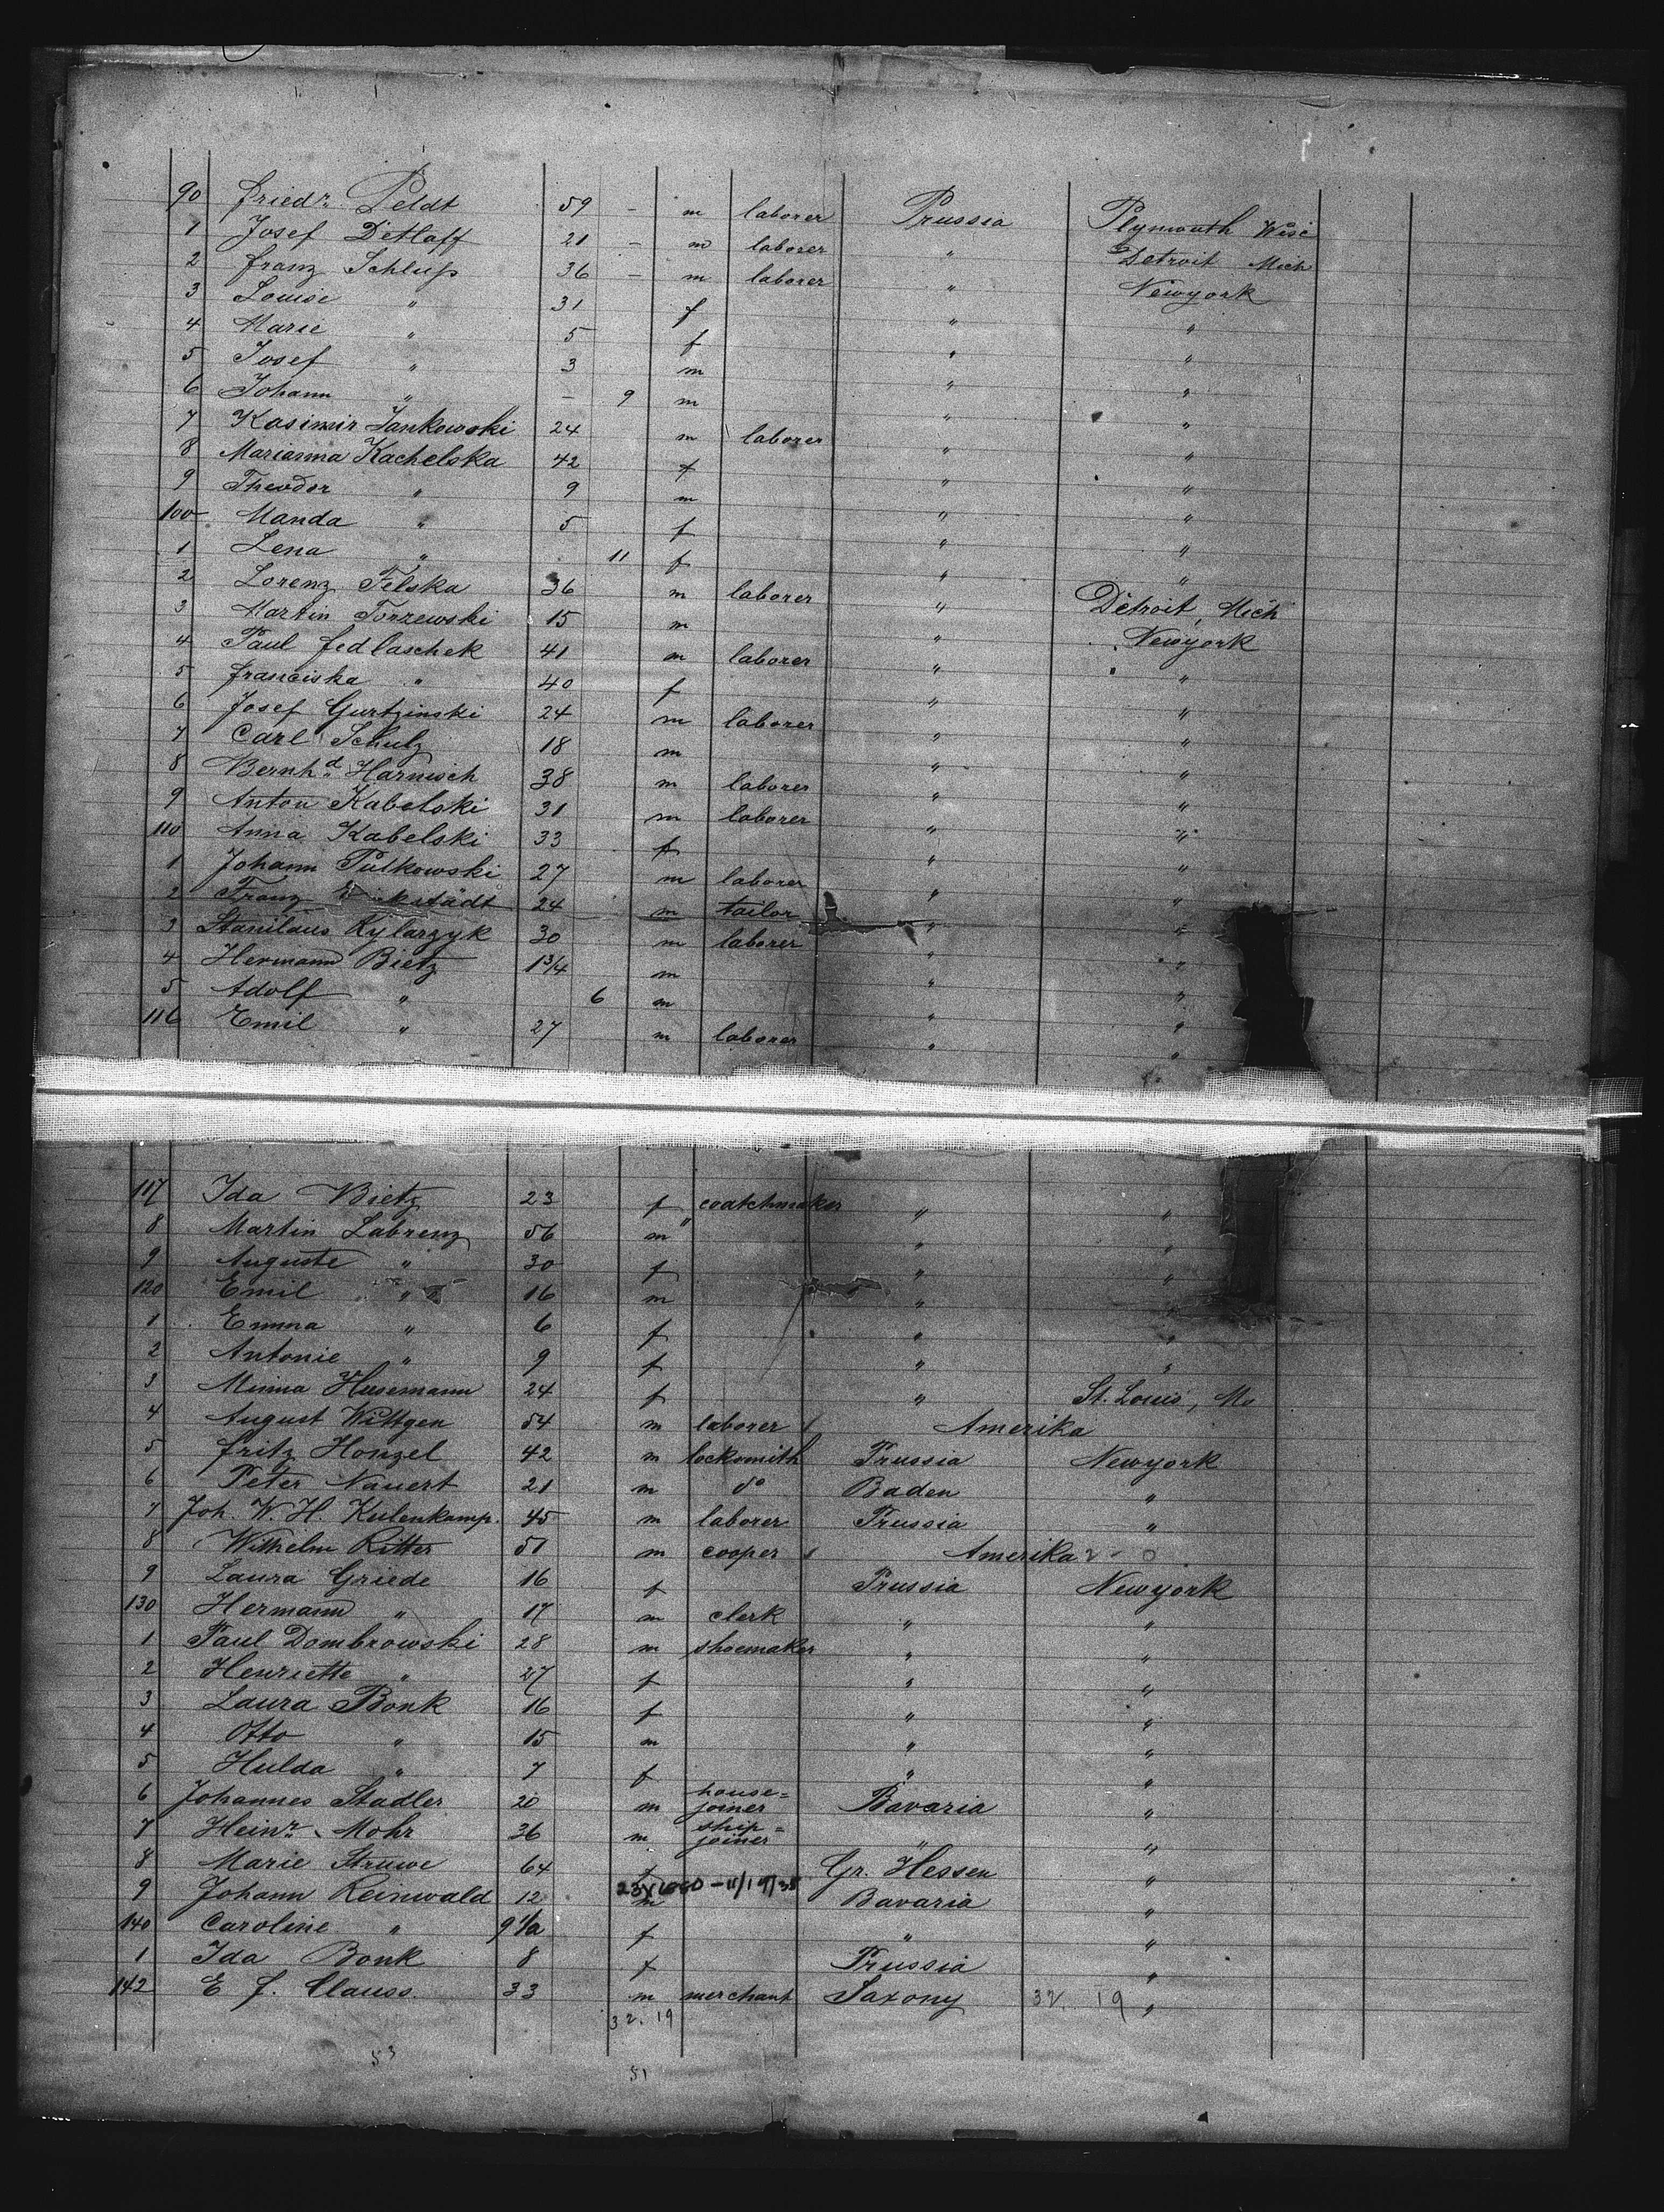 90 Friedr. Peldt 59 - m laborer Prussia Plymouth Wisc
1 Josef Detlaff 21 - m laborer " Detroit Mich
2 Franz Schluß 36 - m laborer " Newyork
3 Louise " 31 f " "
4 Marie " 5 f " "
5 Josef " 3 m " "
6 Johann " - 9 m " "
7 Kasimir Jankowski 24 m laborer " "
8 Marianna Kachelska 42 f " "
9 Theodor " 9 m " "
100 Manda " 5 f " "
1 Lena " 11 f " "
2 Lorenz Felska 36 m laborer " Detroit, Mich
3 Martin Torzewski 15 m " Newyork
4 Paul Fedlaschek 41 m laborer " "
5 Franciska " 40 f " "
6 Josef Gurtzinski 24 m laborer " "
7 Carl Schulz 18 m " "
8 Bernhd. Harnisch 38 m laborer " "
9 Anton Kabelski 31 m laborer " "
110 Anna Kabelski 33 f " "
1 Johann Putkowski 27 m laborer " "
2 Franz 24 m tailor " "
3 Stanilaus Rylarzyk 30 m laborer " "
4 Hermann Bietz 1 3/4 m " "
5 Adolf " 6 m " "
116 Emil " 27 m laborer " "
117 Ida Bietz 23 f " "
8 Martin Labrenz 56 m coatchmaker " "
9 Auguste " 30 f " "
120 Emil " 16 m " "
1 Emma " 6 f " "
2 Antonie " 9 f " "
3 Minna Husemann 24 f " St. Louis, Mo
4 August Wittgen 54 m laborer Amerika
5 Fritz Honzel 42 m locksmith Prussia Newyork
6 Peter Nauert 21 m do Baden "
7 Joh. W. H. Kulenkamp. 45 m laborer Prussia "
8 Wilhelm Ritter 51 m cooper Amerika
9 Laura Griede 16 f Prussia Newyork
130 Hermann " 17 m clerk " "
1 Paul Dombrowski 28 m shoemaker " "
2 Henriette " 27 f " "
3 Laura Bonk 16 f " "
4 Otto " 15 m " "
5 Hulda " 7 f " "
6 Johannes Stadler 20 m house=joiner Bavaria "
7 Heinr. Mohr 36 m ship=joiner " "
8 Marie Struwe 64 f Gr. Hessen "
9 Johann Reinwald 12 m Bavaria "
140 Caroline " 9 1/2 f " "
1 Ida Bonk 8 f Prussia "
142 E. F. Clauss. 33 m merchant Saxony 32. 19 "
32. 19
53
51